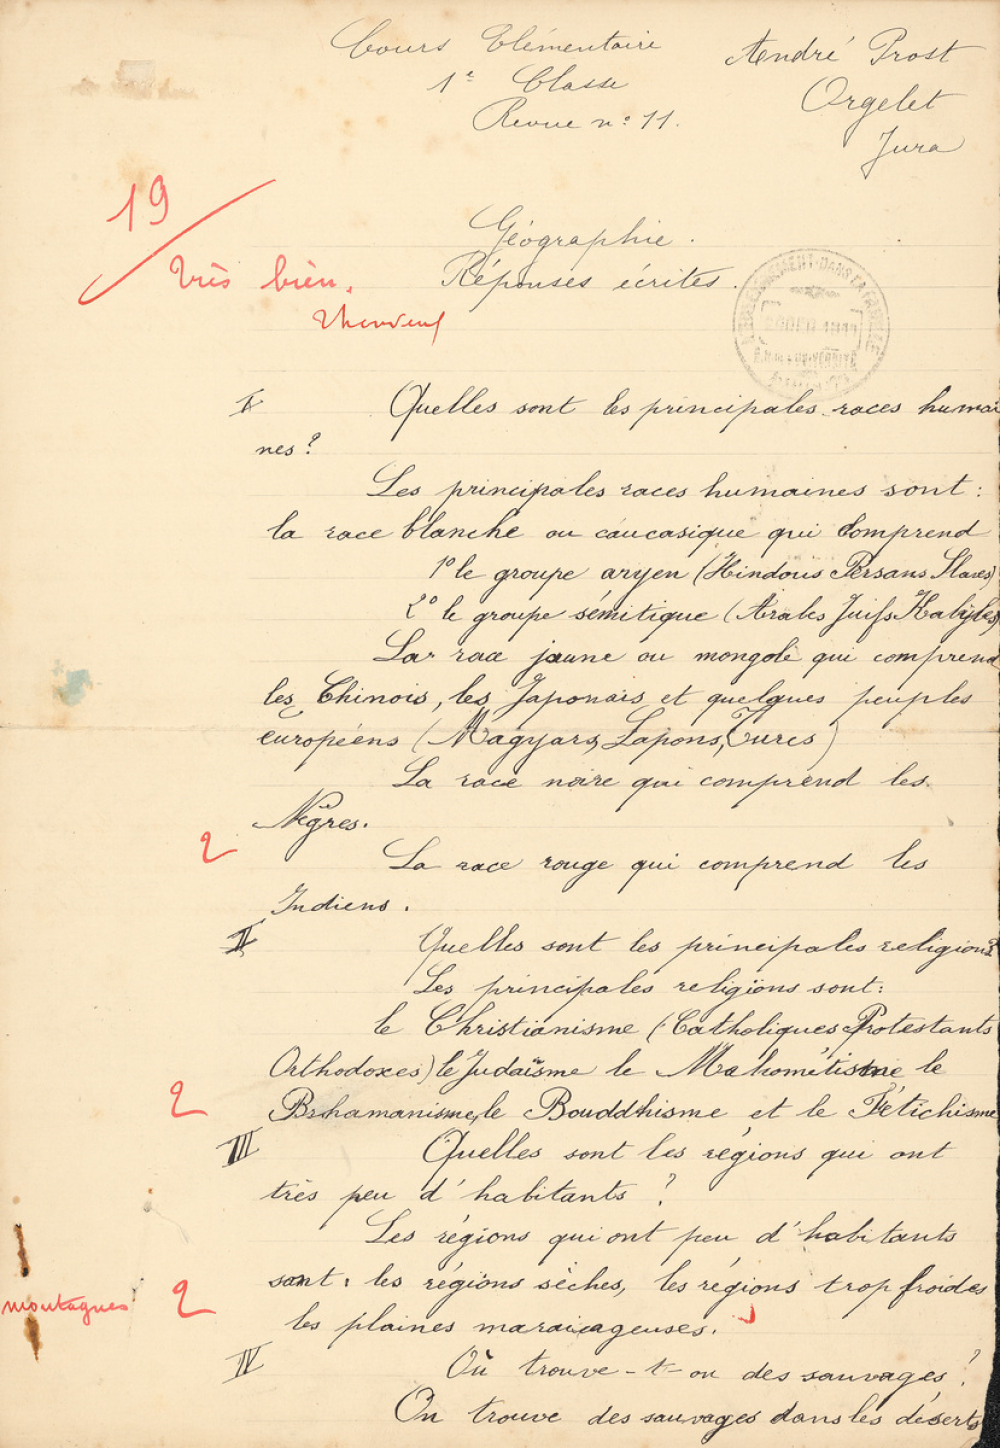 Cours Elémentaire
1e Classe
Revue n° 11.
André Prost
Orgelet
Jura
19
Très bien.
Géographie.
Réponses écrites.
I Quelles sont les principales races humai
nes ?
Les principales races humaines sont :
la race blanche ou caucasique qui comprend
1° le groupe aryen (Hindous Persans Slaves)
2° le groupe sémitique (Arabes Juifs Kabyles)
La race jaune ou mongole qui comprend
les Chinois, les Japonais et quelques peuples
européens (Magyars, Lapons, Turcs)
La race noire qui comprend les
Nègres.
2
La race rouge qui comprend les
Indiens.
II Quelles sont les principales religions?
Les principales religions sont :
le Christianisme (Catholiques Protestants
Orthodoxes) le Judaïsme le Mahométisme le
2 Brahamanisme, le Bouddhisme et le Fétichisme
III Quelles sont les régions qui ont
très peu d'habitants ?
Les régions qui ont peu d'habitants
sont : les régions sèches, les régions trop froides
montagnes 2
les plaines maraicageuses.
IV Où trouve-t-on des sauvages ?
On trouve des sauvages dans les déserts